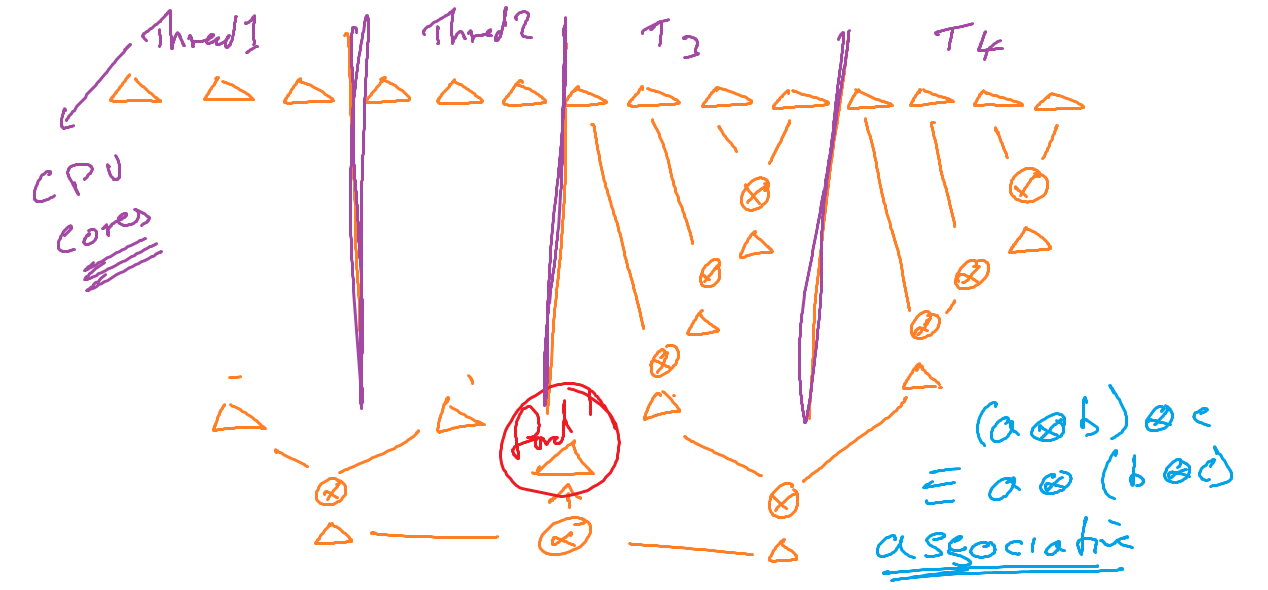 Thread1 Thred2 T3 T4
CPU
cores
(a⊗b)⊗c
≡ a⊗(b⊗c)
associative